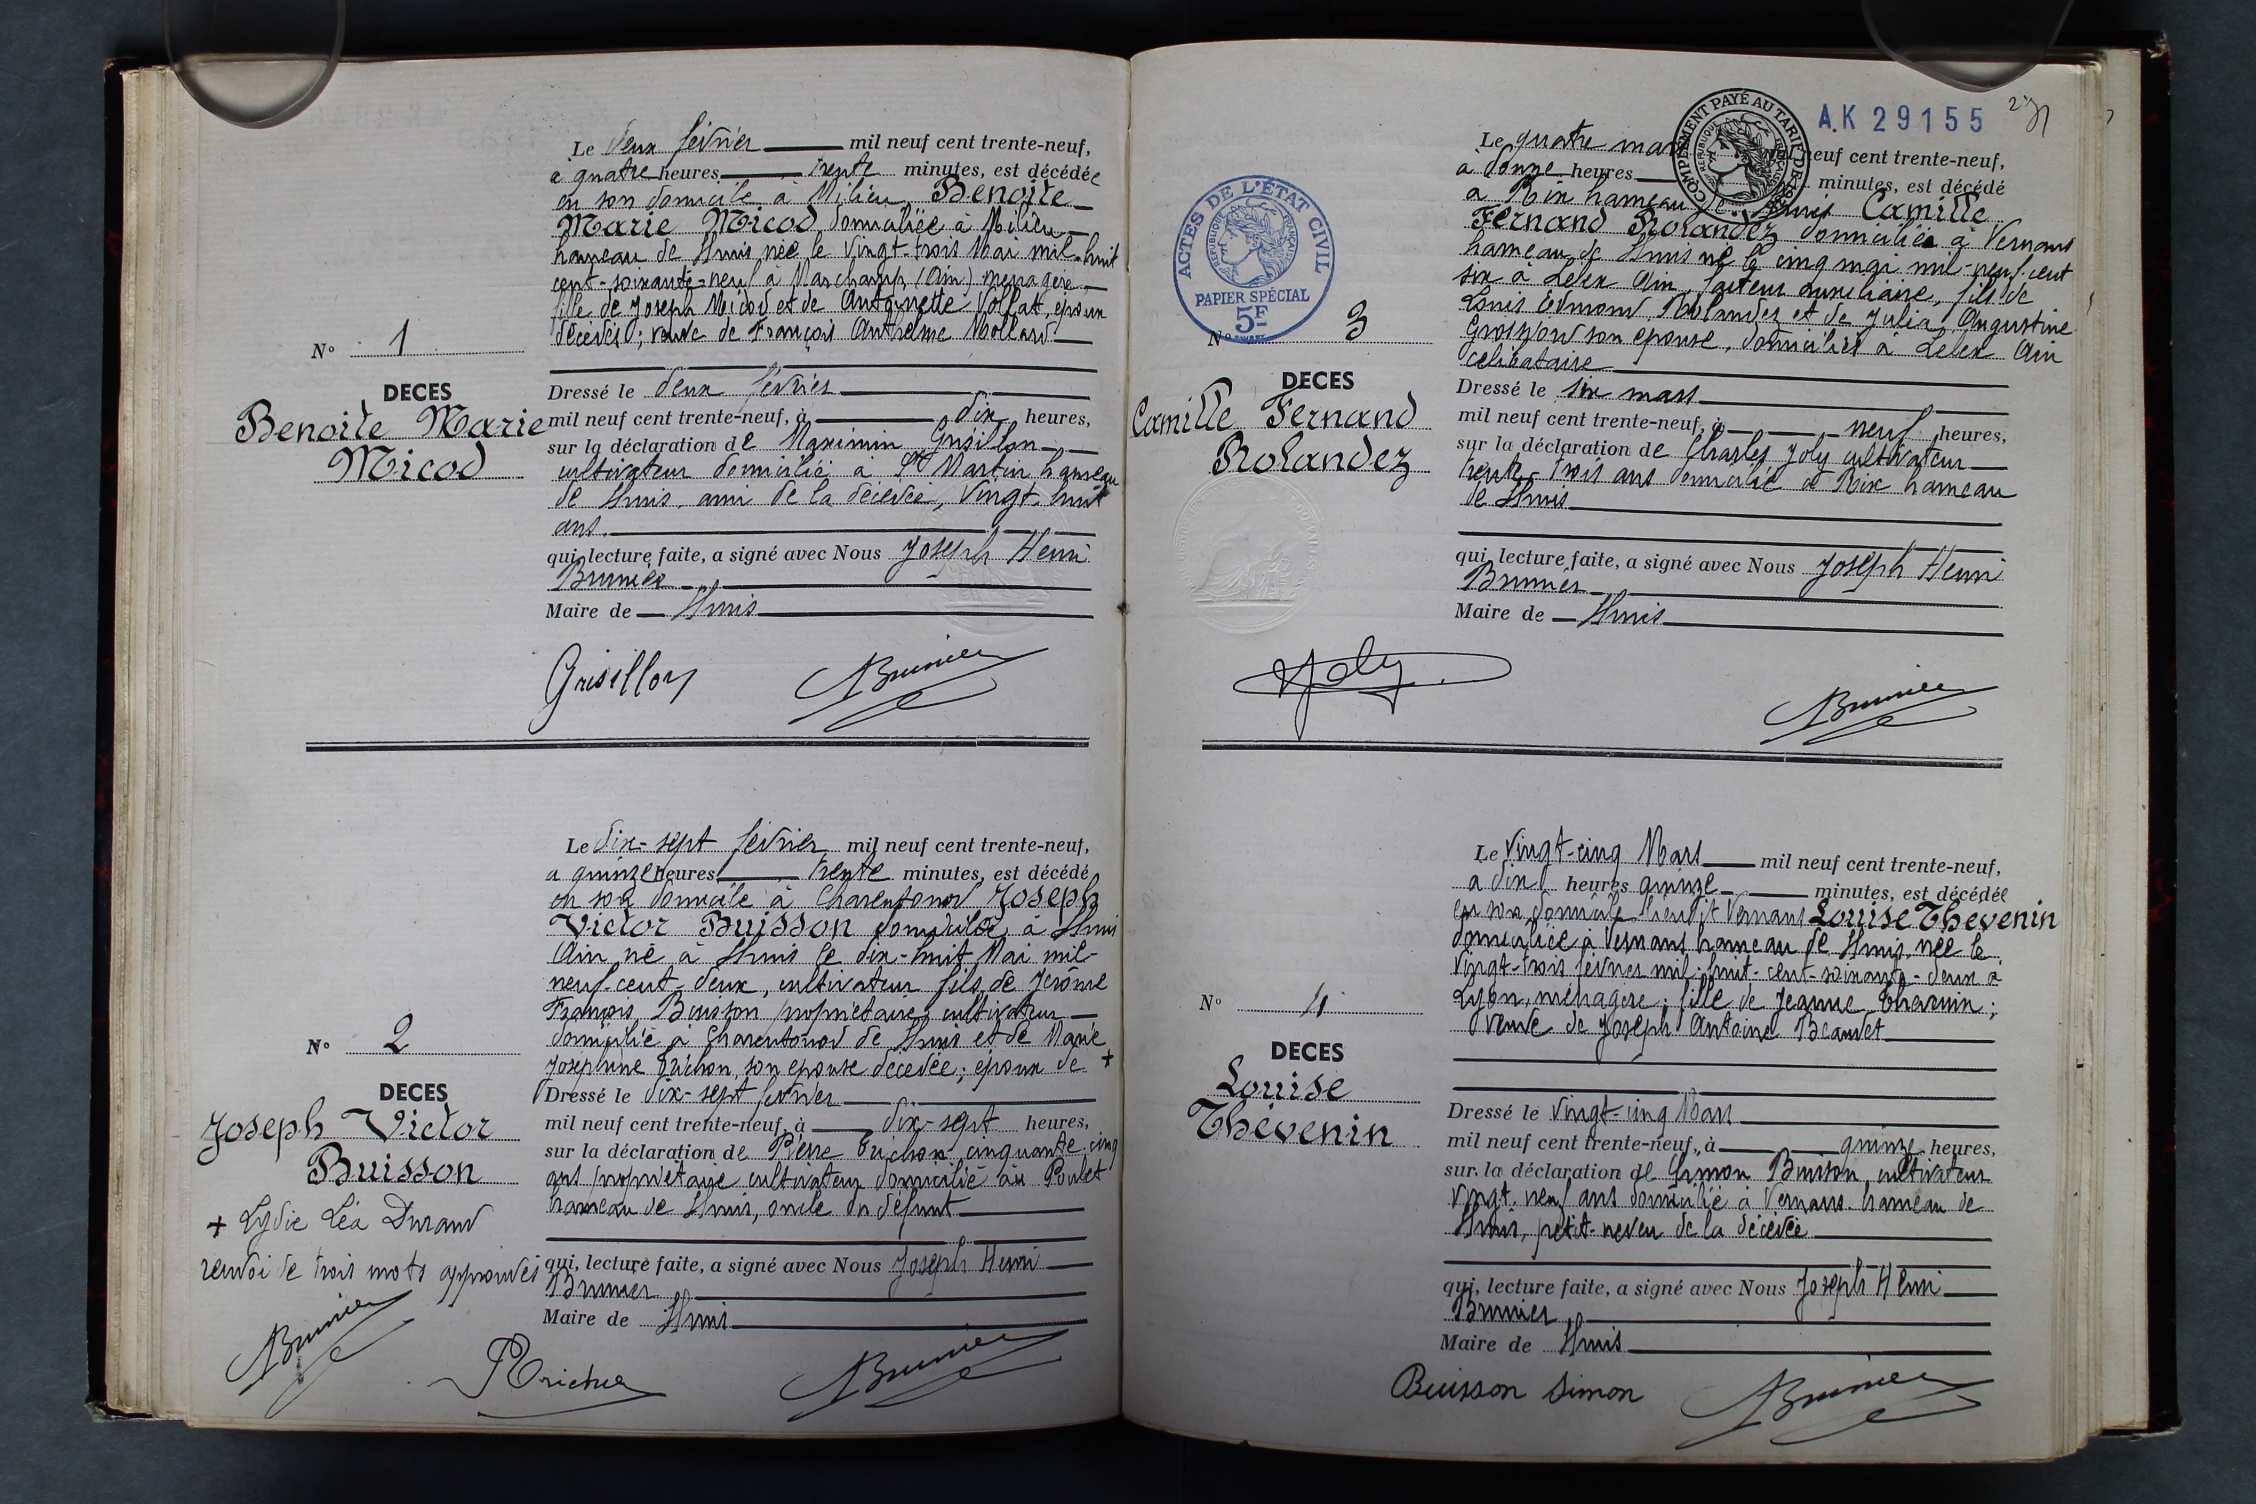 Le deux février mil neuf cent trente-neuf,
à quatre heures trente minutes, est décédée
en son domicile à Milieu Benoite
Marie Micod domiciliée à Milieu
hameau de Lhuis née le vingt-trois Mai mil-huit
cent-soixante-neuf à Marchamp (Ain) ménagère
fille de Joseph Micod et de Antoinette Vollat, époux
décédés; veuve de François Anthelme Mollard
N° 1
DECES
Benoite Marie
Micod
Dressé le deux février
mil neuf cent trente-neuf, à dix heures,
sur la déclaration de Maximin Grisillon
cultivateur domicilié à St Martin hameau
de Lhuis, ami de la décédée, vingt-huit
ans.
qui, lecture faite, a signé avec Nous Joseph Henri
Brunier
Maire de Lhuis
Grisillon Brunier
Le dix-sept février mil neuf cent trente-neuf,
à quinze heures trente minutes, est décédé
en son domicile à Charentonod Joseph
Victor Buisson domicilié à Lhuis
Ain né à Lhuis le dix-huit Mai mil-
neuf-cent-deux, cultivateur fils de Jérôme
François Buisson propriétaire cultivateur
domicilié à Charentonod de Lhuis et de Marie
Joséphine Trichon, son épouse décédée; époux de +
N° 2
DECES
Joseph Victor
Buisson
+ Lydie Léa Durand
renvoi de trois mots approuvés
Brunier
Dressé le dix-sept février
mil neuf cent trente-neuf, à dix-sept heures,
sur la déclaration de Pierre Trichon cinquante cinq
ans propriétaire cultivateur domicilié au Poulet
hameau de Lhuis, oncle du défunt
qui, lecture faite, a signé avec Nous Joseph Henri
Brunier
Maire de Lhuis
Brunier
A.K 29155
COMPLEMENT PAYÉ AU TARIF DE
ACTES DE L'ÉTAT CIVIL
REPUBLIQUE FRANÇAISE
PAPIER SPÉCIAL
5F
Le quatre mars neuf cent trente-neuf,
à douze heures minutes, est décédé
à Rix hameau de Lhuis Camille
Fernand Rolandez domicilié à Vernans
hameau de Lhuis né le cinq mai mil-neuf-cent
six à Lelex Ain, facteur auxiliaire, fils de
Louis Edmond Rolandez et de Julia Augustine
Grosfort son épouse, domiciliés à Lelex Ain
célibataire
N° 3
DECES
Camille Fernand
Rolandez
Dressé le six mars
mil neuf cent trente-neuf, à neuf heures,
sur la déclaration de Charles Joly cultivateur
trente-trois ans domicilié à Rix hameau
de Lhuis
qui, lecture faite, a signé avec Nous Joseph Henri
Brunier
Maire de Lhuis
Joly Brunier
Le vingt-cinq Mars mil neuf cent trente-neuf,
à dix heures quinze minutes, est décédée
en son domicile lieudit Vernans Louise Thévenin
domiciliée à Vernans hameau de Lhuis, née le
vingt-trois février mil-huit-cent-soixante-deux à
Lyon, ménagère; fille de Jeanne Thévenin;
veuve de Joseph Antoine Beaudet
N° 4
DECES
Louise
Thévenin
Dressé le vingt-cinq Mars
mil neuf cent trente-neuf, à quinze heures,
sur la déclaration de Simon Buisson, cultivateur
vingt-neuf ans domicilié à Vernans hameau de
Lhuis, petit-neveu de la décédée
qui, lecture faite, a signé avec Nous Joseph Henri
Brunier
Maire de Lhuis
Buisson Simon Brunier